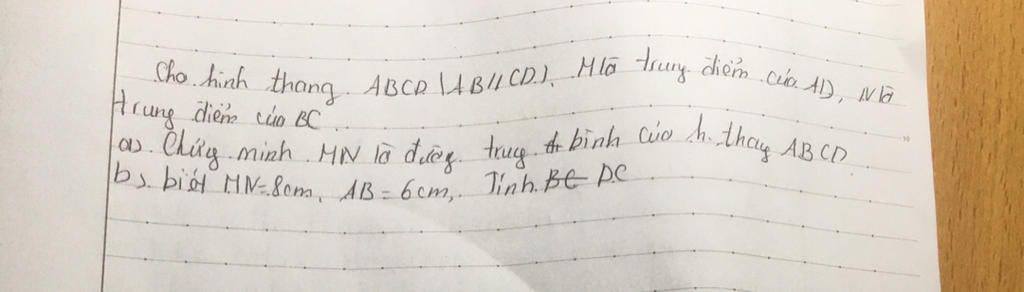 Cho hình thang ABCD (AB//CD). M là trung điểm của AD, N là
trung điểm của BC
a). Chứng minh MN là đường trug bình của h. thag ABCD
b). biết MN=8cm, AB=6cm, Tính BC DC